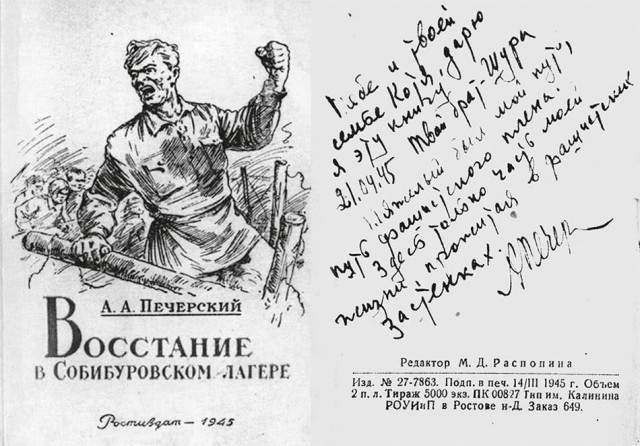 А. А. Печерский
Восстание
в Собибуровском лагере
Ростиздат – 1945
Тебе и твоей
семье Котя, дарю
я эту книгу.
21.04.45 Твой брат Шура
Тяжелый был мой путь,
путь фашистского плена.
Здесь только часть моей
жизни прожитая в фашистских
застенках.
АПечер
Редактор М. Д. Распопина
Изд. № 27-7863. Подп. в печ. 14/III 1945 г. Объем
2 п. л. Тираж 5000 экз. ПК 00827 Тип им. Калинина
РОУИиП в Ростове н-Д. Заказ 649.